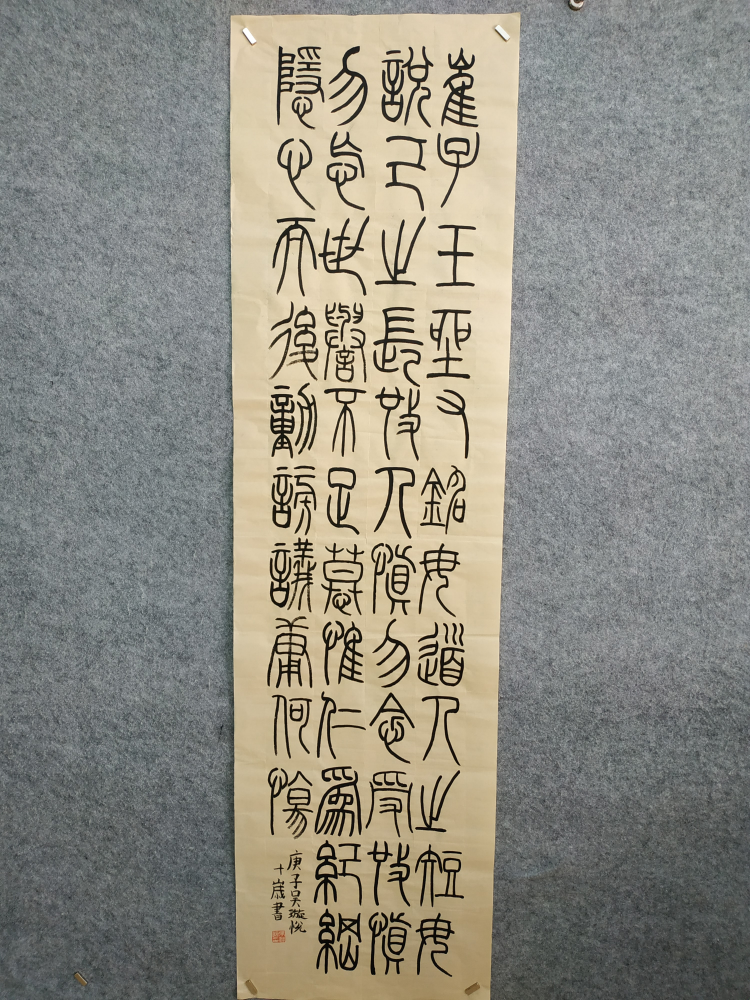 崔子玉座右銘毋道人之短毋
說己之長施人慎勿念受施慎
勿忘世譽不足慕惟仁為紀綱
隱心而後動謗議庸何傷
庚子吴璇悦
十歲書